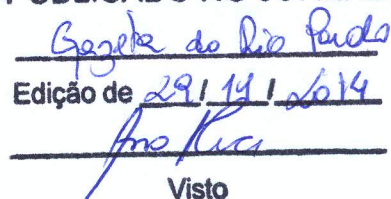 Gazeta do Rio Pardo
Edição de 29 / 11 / 2014
Visto